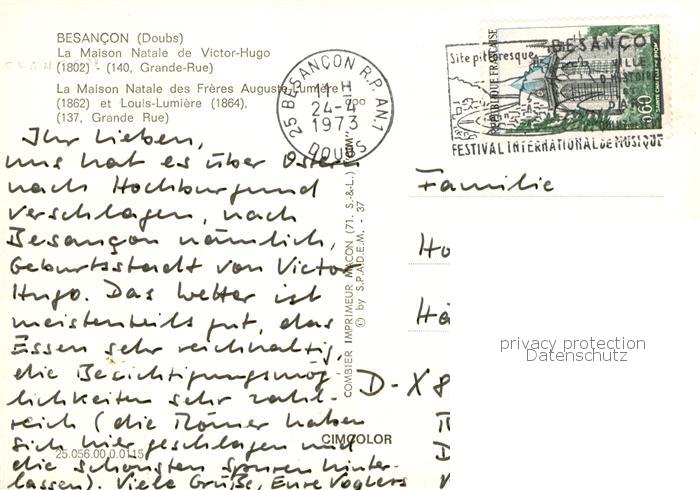 BESANÇON (Doubs)
La Maison Natale de Victor-Hugo
(1802) - (140, Grande-Rue)
La Maison Natale des Frères Auguste-Lumière
(1862) et Louis-Lumière (1864).
(137, Grande Rue)
Ihr Lieben,
uns hat es über Ostern
nach Hochburgund
verschlagen, nach
Besançon nämlich,
Geburtsstadt von Victor
Hugo. Das Wetter ist
meistenteils gut, das
Essen sehr reichhaltig,
die Besichtigungsmög-
lichkeiten sehr zahl-
reich (die Römer haben
sich hier geschlagen und
die schönsten Spuren hinter-
lassen). Viele Grüße, Eure Voglers
25.056.00.0.0115
CIMCOLOR
COMBIER IMPRIMEUR MACON (71. S.-&-L.)
© by S.P.A.D.E.M. - 37
25 BESANÇON R.P. AN.1
11 H
24-4
1973
DOUBS
Site pittoresque
BESANÇON
VILLE
D'HISTOIRE
FESTIVAL INTERNATIONAL DE MUSIQUE
REPUBLIQUE FRANÇAISE
0,60
Familie
Ho
Hä
D-X8
D
privacy protection
Datenschutz